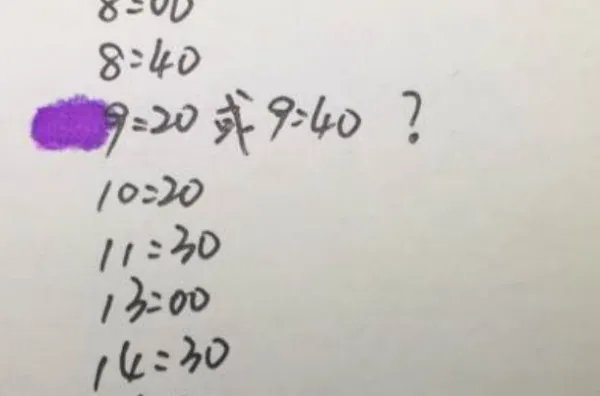 8:00
8:40
9:20 或 9:40 ?
10:20
11:30
13:00
14:30